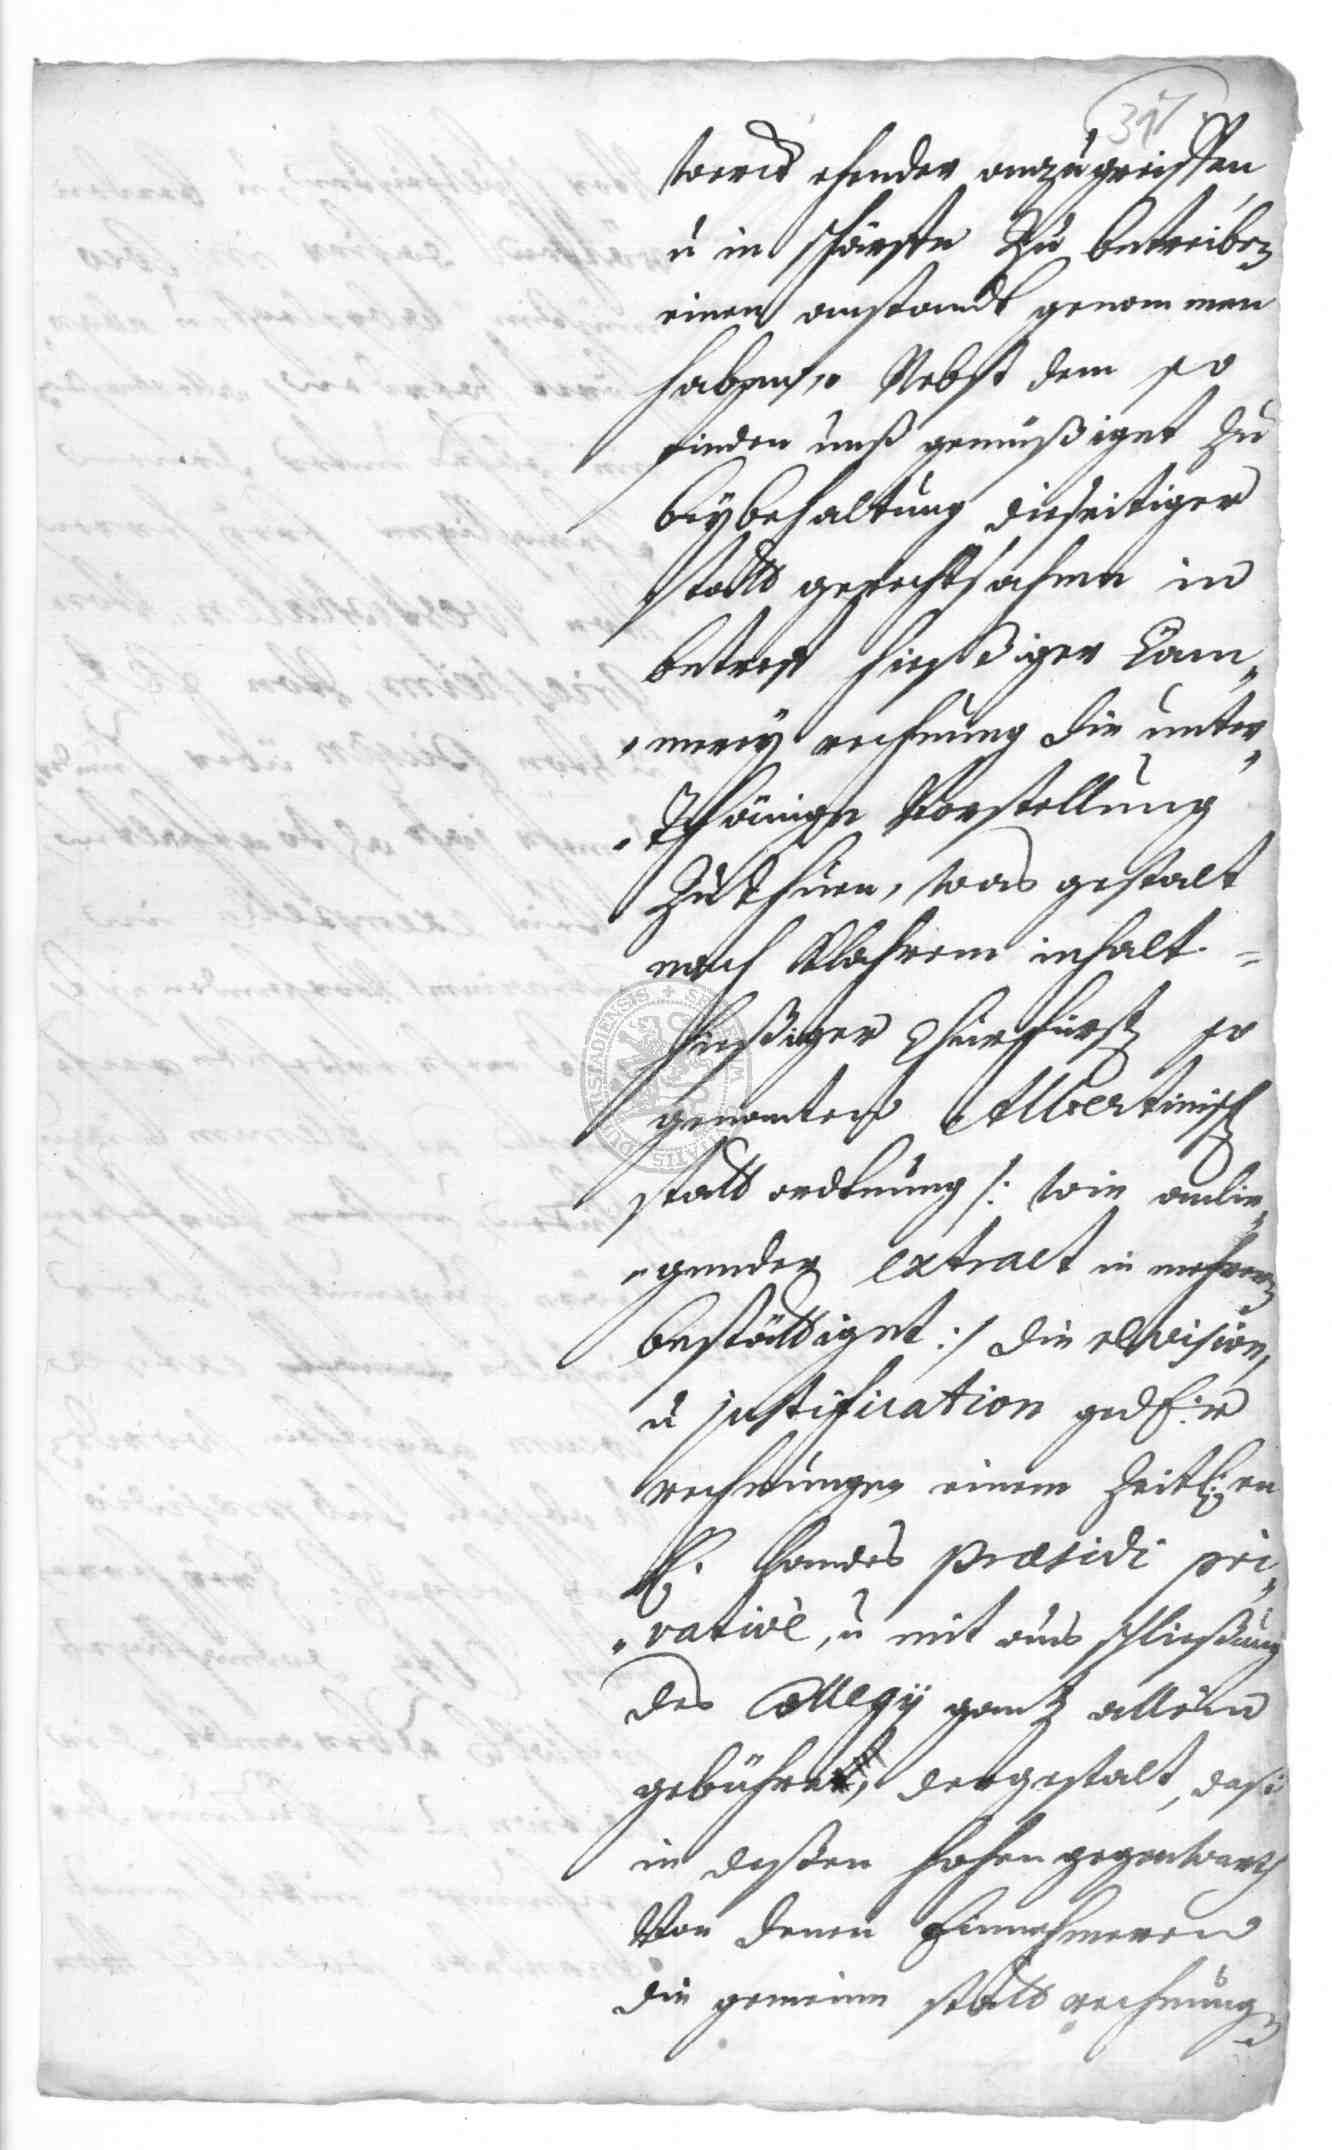 31
werck ehender anzugreiffen
u in schärffte zu betreiben
einen anstandt genommen
haben, Nebst dem so
finden unß gemüßiget zu
beybehaltung dießeitiger
statt gerechtsahmen in
betreff hießiger Cam„
„merey rechnung die unter„
„Thänige Vorstellung
zuthuen, was gestalt
nach klahrem inhalt =
hießiger Churfürstl so
genanten Albertinisch
statt ordtnung /: wie anlie„
„gender extract in mehrern
bestättiget :/ die revision,
u justification gedr
rechnungen einem zeitl:en
H. Landes Præsidi pri„
„vativè, u mit aus schließung
des Collegÿ gantz allein
gebühret, dergestalt, daß
in deßen hohen gegenwarth
Von denen Einnehmeren
die gemeine statt rechnung
SIGILLUM DUSSELDORPIENSIS